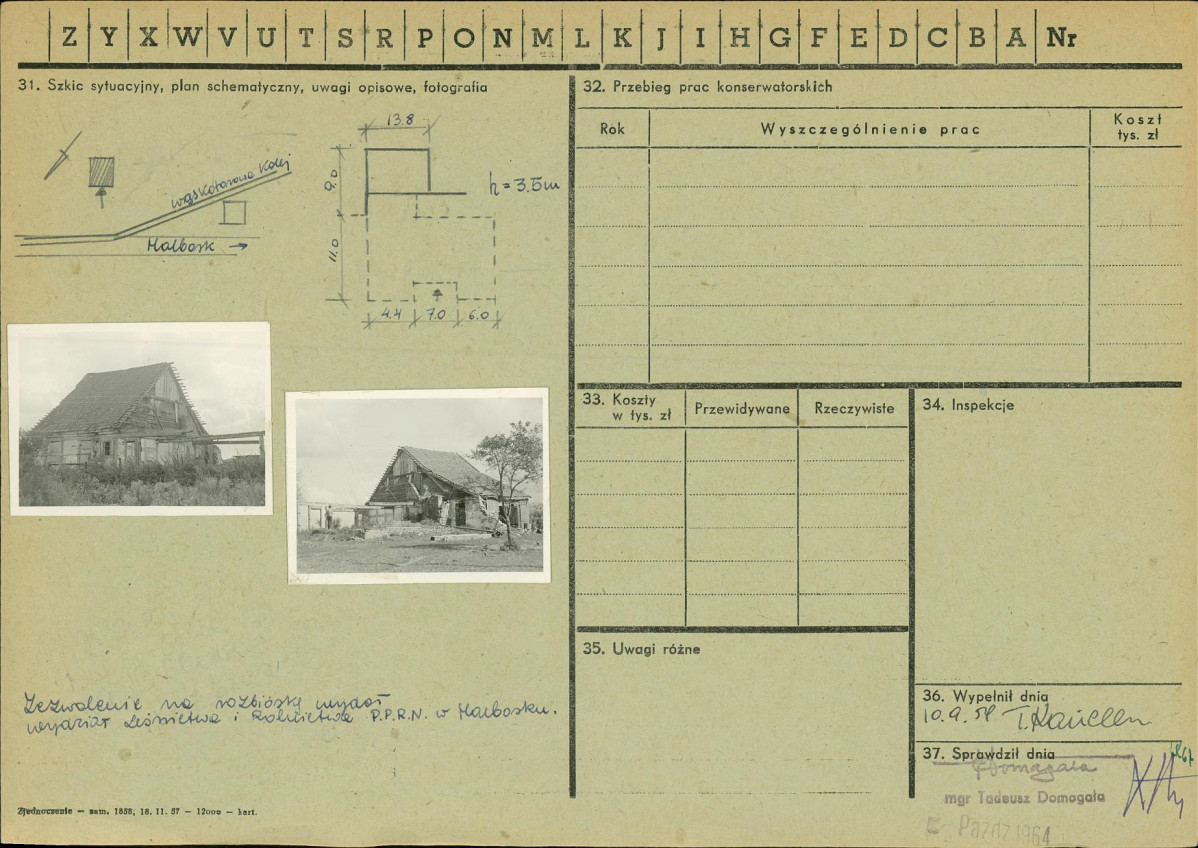 Z Y X W V U T S R P O N M L K J I H G F E D C B A Nr
31. Szkic sytuacyjny, plan schematyczny, uwagi opisowe, fotografia
wąskotorowa kolej
Malbork →
13.8
9.0
h = 3.5m
11.0
4.4 7.0 6.0
Zezwolenie na rozbiórkę wydał
wydział Leśnictwa i Rolnictwa P.P.R.N. w Malborku.
Zjednoczenie — zam. 1858, 18. 11. 57 — 12000 — kart.
32. Przebieg prac konserwatorskich
Rok Wyszczególnienie prac Koszt
tys. zł
33. Koszty
w tys. zł Przewidywane Rzeczywiste
34. Inspekcje
35. Uwagi różne
36. Wypełnił dnia
10.9.59
37. Sprawdził dnia
mgr Tadeusz Domagała
Paźdz 1964